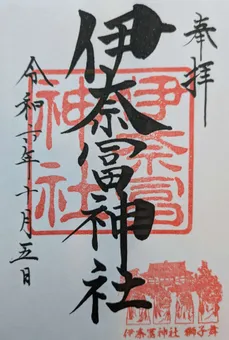 奉拝
伊奈冨神社
伊奈富
神社
令和二年十月五日
伊奈冨神社 獅子舞